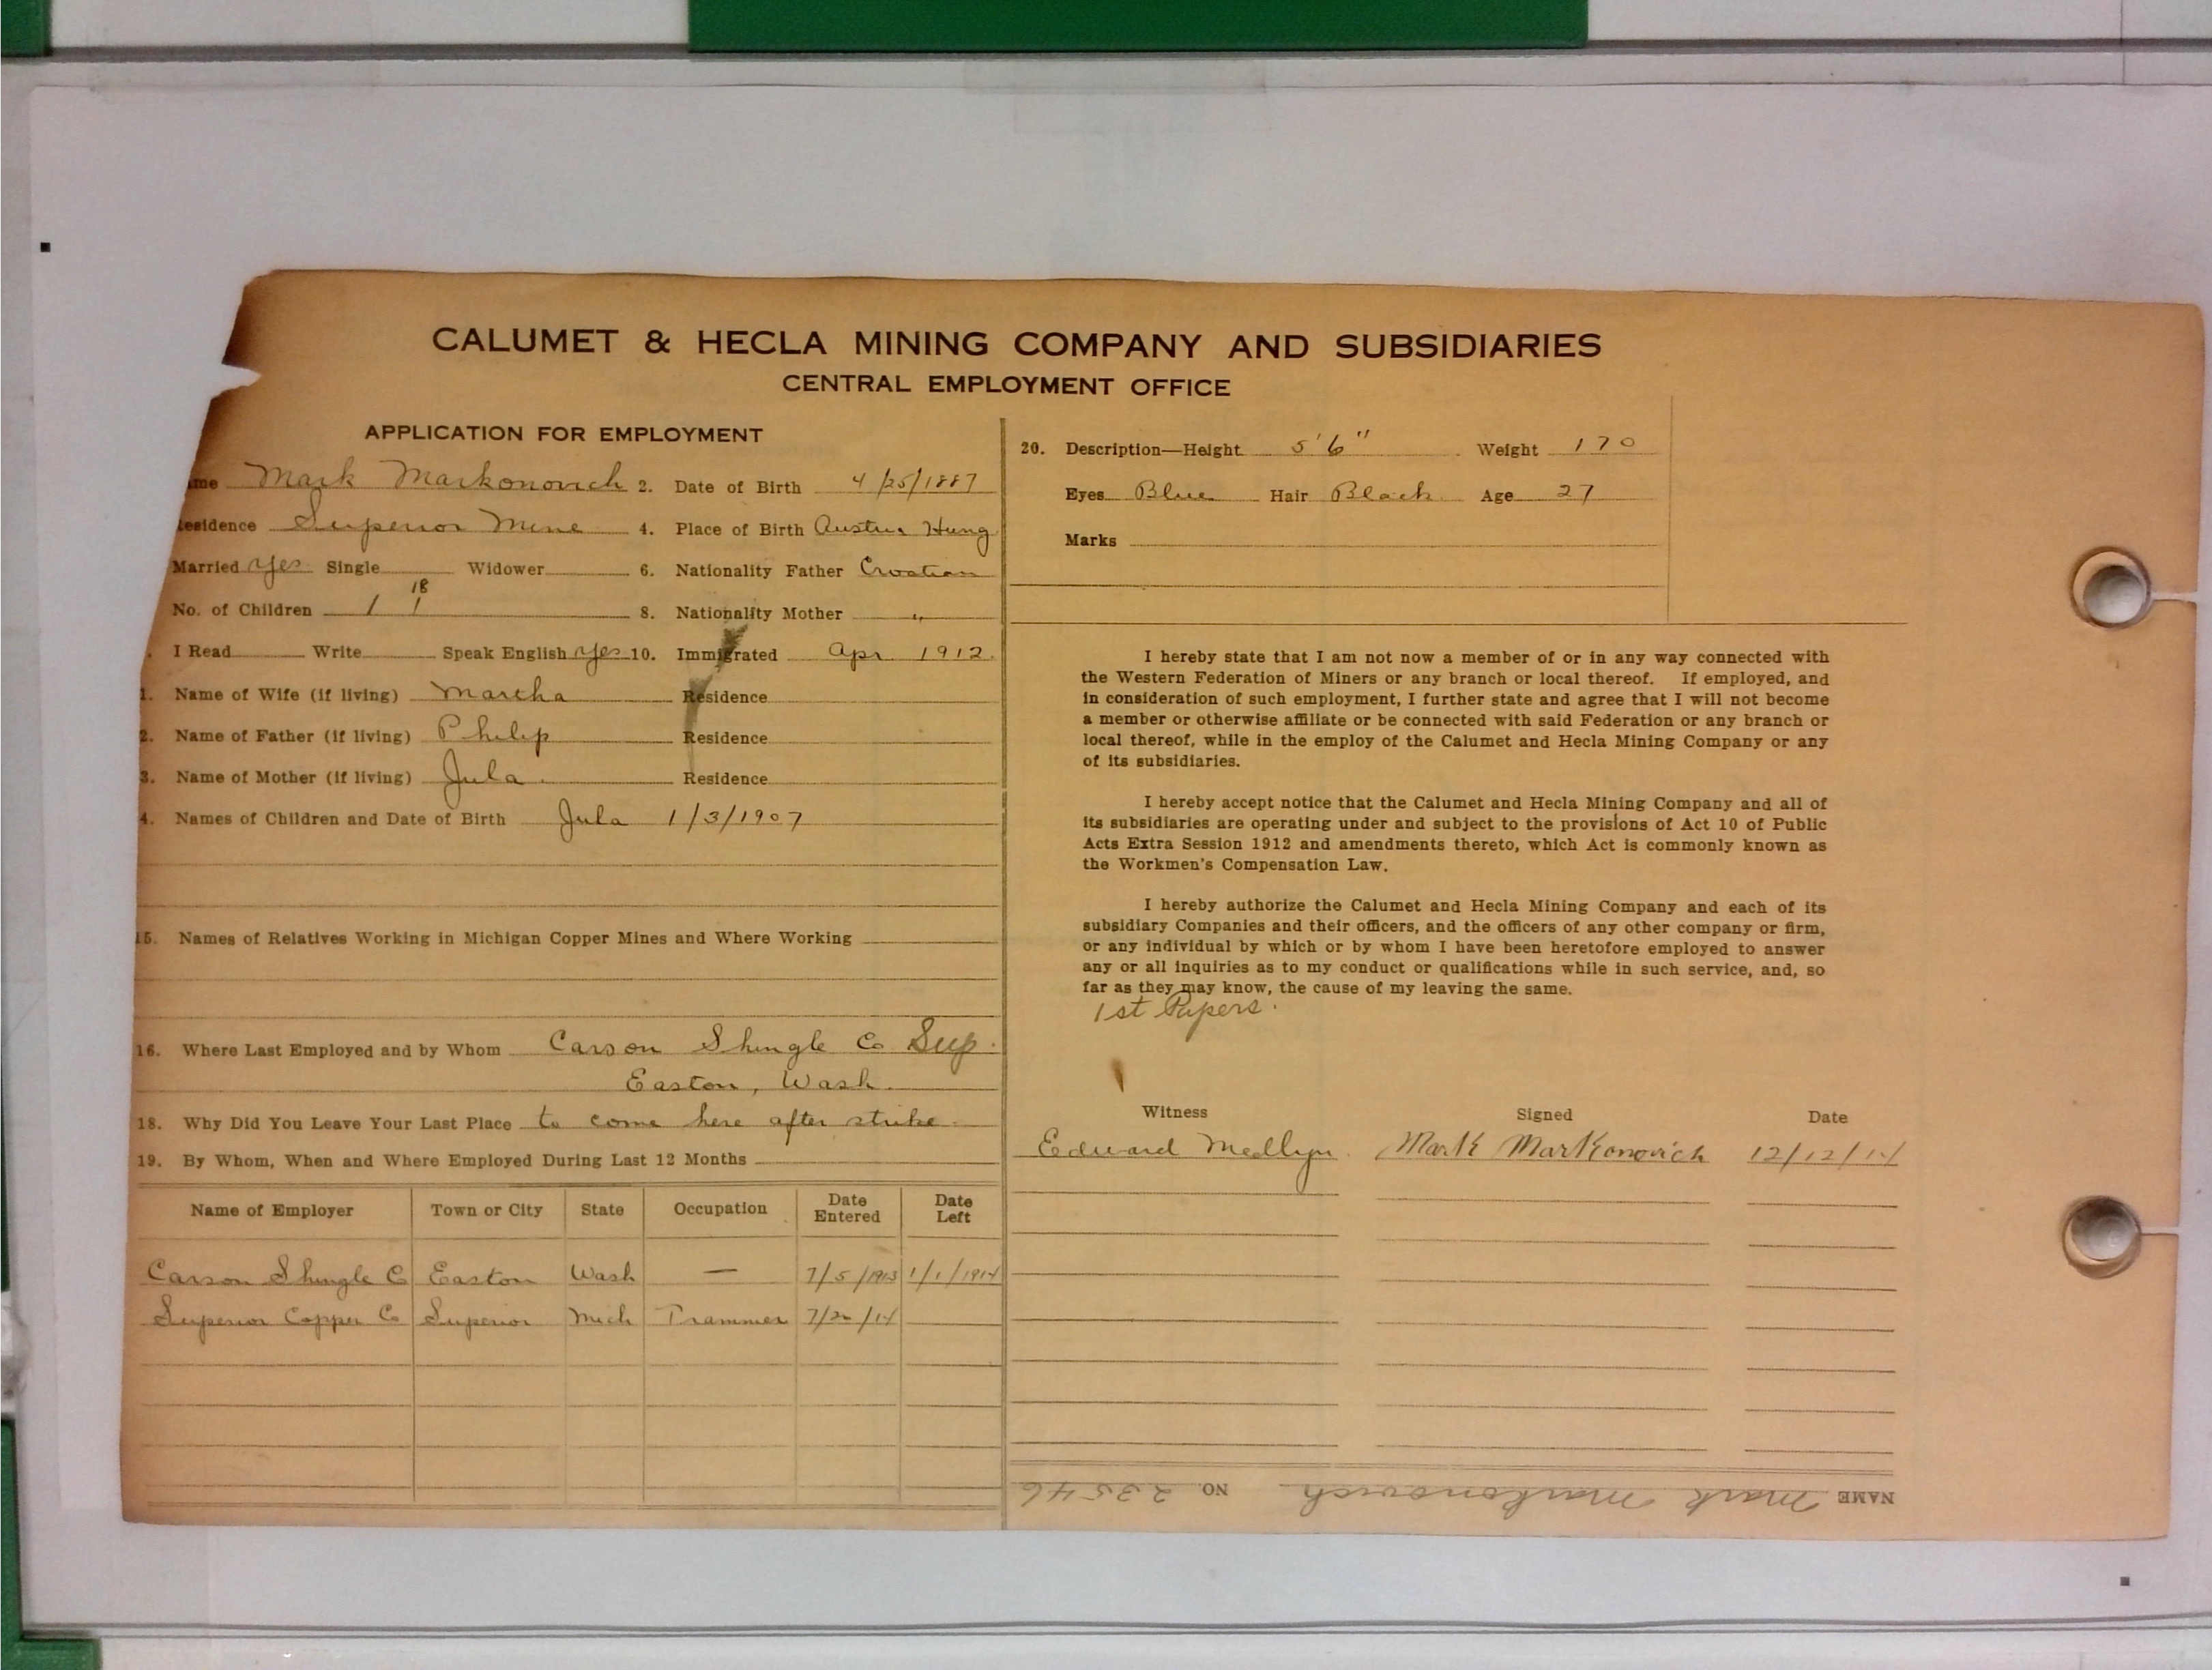 CALUMET & HECLA MINING COMPANY AND SUBSIDIARIES
CENTRAL EMPLOYMENT OFFICE
APPLICATION FOR EMPLOYMENT
ame Mark Markonovich 2. Date of Birth 4/25/1887
esidence Superior Mine 4. Place of Birth Austria Hung
Married yes Single Widower 6. Nationality Father Croatian
18
No. of Children 1 1 8. Nationality Mother "
I Read Write Speak English yes 10. Immigrated Apr 1912
1. Name of Wife (if living) Martha Residence
2. Name of Father (if living) Philip Residence
3. Name of Mother (if living) Jula. Residence
4. Names of Children and Date of Birth Jula 1/3/1907
15. Names of Relatives Working in Michigan Copper Mines and Where Working
16. Where Last Employed and by Whom Carson Shingle Co Sup.
Easton, Wash.
18. Why Did You Leave Your Last Place to come here after strike
19. By Whom, When and Where Employed During Last 12 Months
Name of Employer Town or City State Occupation Date Entered Date Left
Carson Shingle C Easton Wash — 7/5/1913 1/1/1914
Superior Copper Co Superior Mich Trammer 7/20/14
20. Description—Height 5'6" Weight 170
Eyes Blue Hair Black Age 27
Marks
I hereby state that I am not now a member of or in any way connected with
the Western Federation of Miners or any branch or local thereof. If employed, and
in consideration of such employment, I further state and agree that I will not become
a member or otherwise affiliate or be connected with said Federation or any branch or
local thereof, while in the employ of the Calumet and Hecla Mining Company or any
of its subsidiaries.
I hereby accept notice that the Calumet and Hecla Mining Company and all of
its subsidiaries are operating under and subject to the provisions of Act 10 of Public
Acts Extra Session 1912 and amendments thereto, which Act is commonly known as
the Workmen's Compensation Law.
I hereby authorize the Calumet and Hecla Mining Company and each of its
subsidiary Companies and their officers, and the officers of any other company or firm,
or any individual by which or by whom I have been heretofore employed to answer
any or all inquiries as to my conduct or qualifications while in such service, and, so
far as they may know, the cause of my leaving the same.
1st Papers.
Witness Signed Date
Edward Medlyn Mark Markonovich 12/12/14
NAME Mark Markonovich NO. 23546